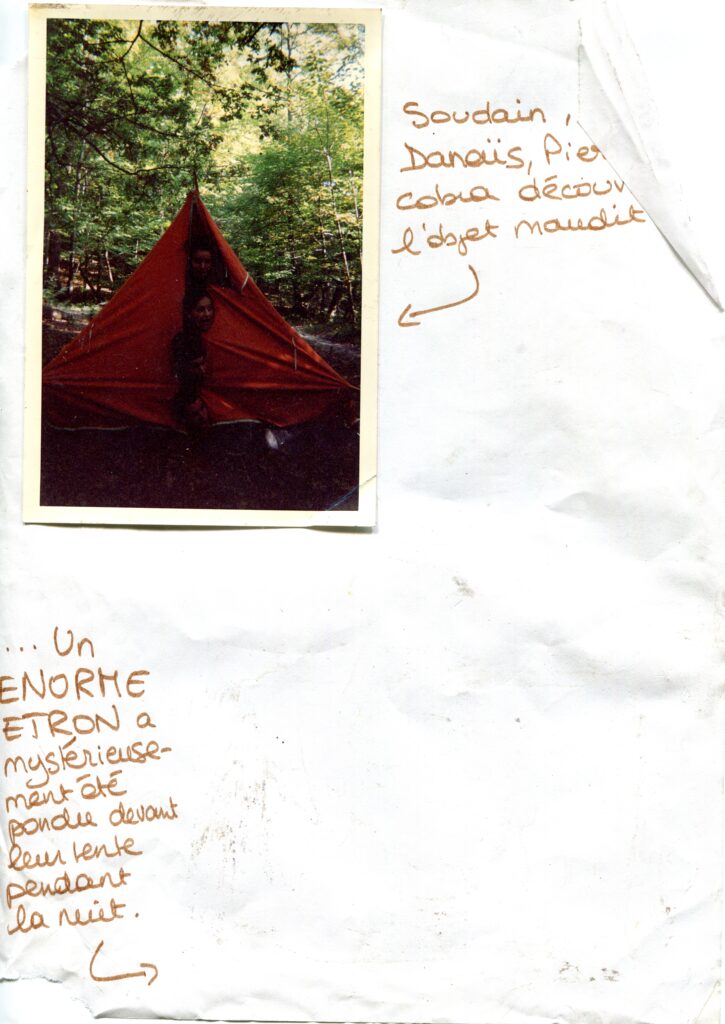 Soudain,
Danaïs, Pier
cobra découv
l'objet maudit
... Un
ENORME
ETRON a
mystérieuse-
ment été
pondu devant
leur tente
pendant
la nuit.